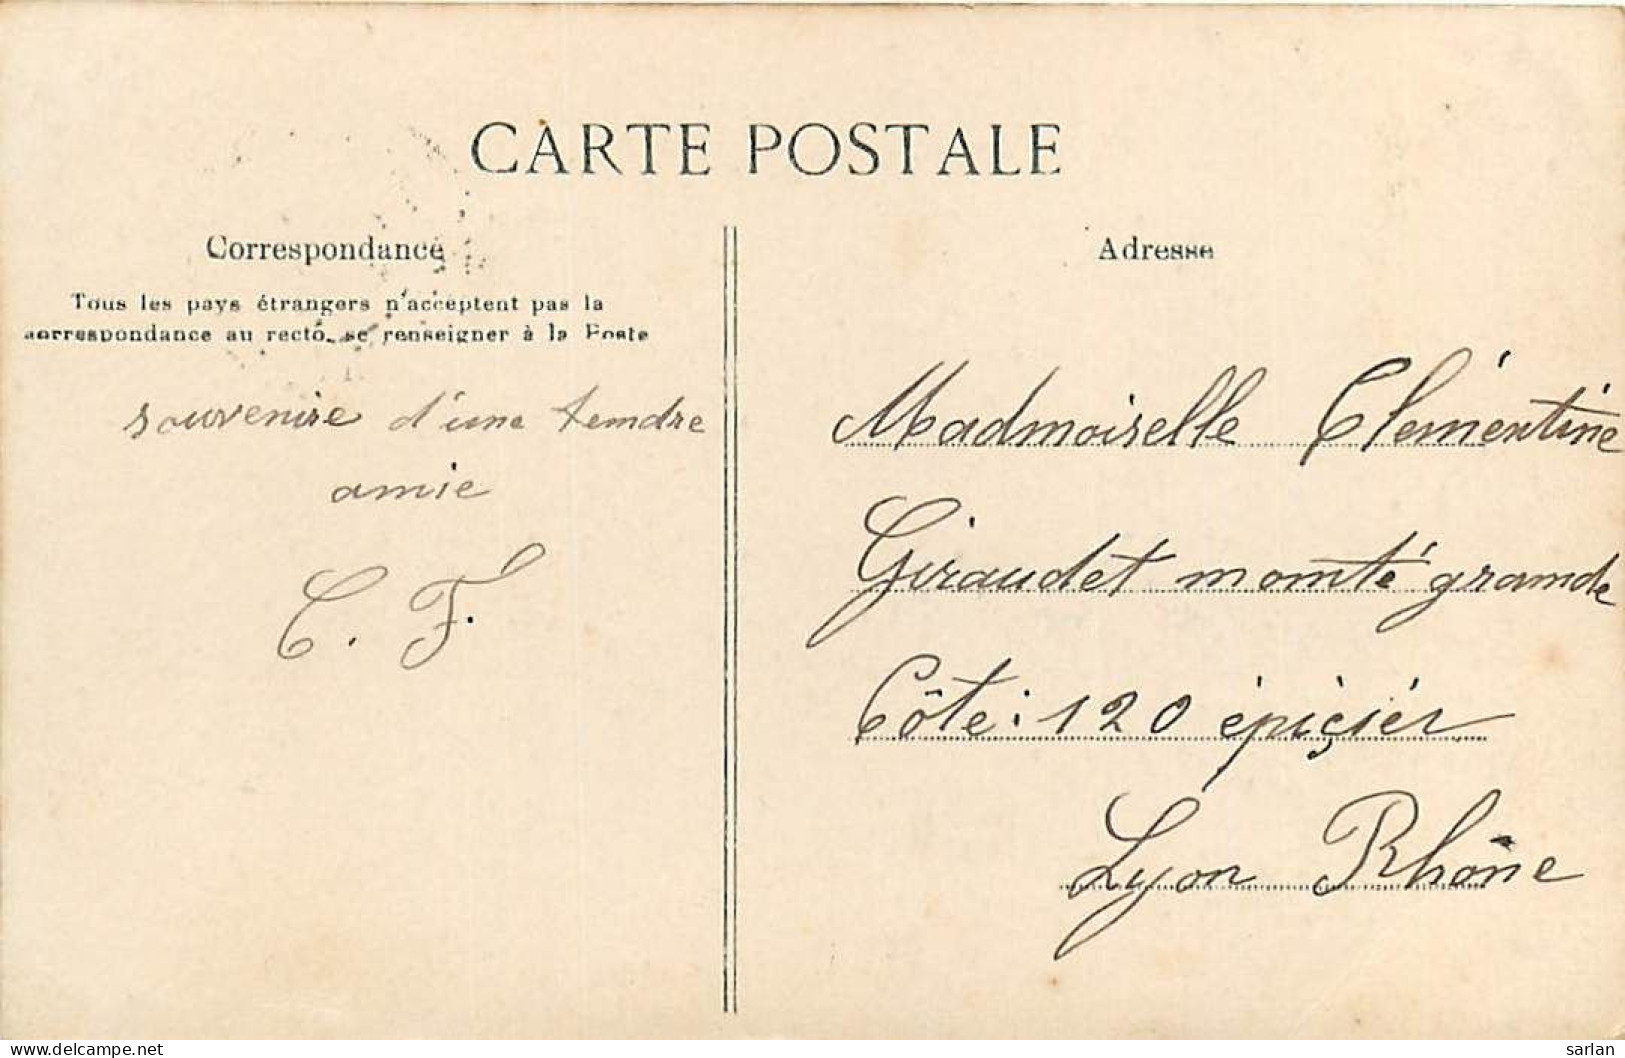 CARTE POSTALE
Correspondance
Tous les pays étrangers n'acceptent pas la
correspondance au recto, se renseigner à la Poste
souvenire d'une temdre
amie
C. F.
Adresse
Madmoiselle Clémentine
Giraudet momté gramde
Côte : 120 épicier
Lyon Rhône
delcampe.net
sarlan